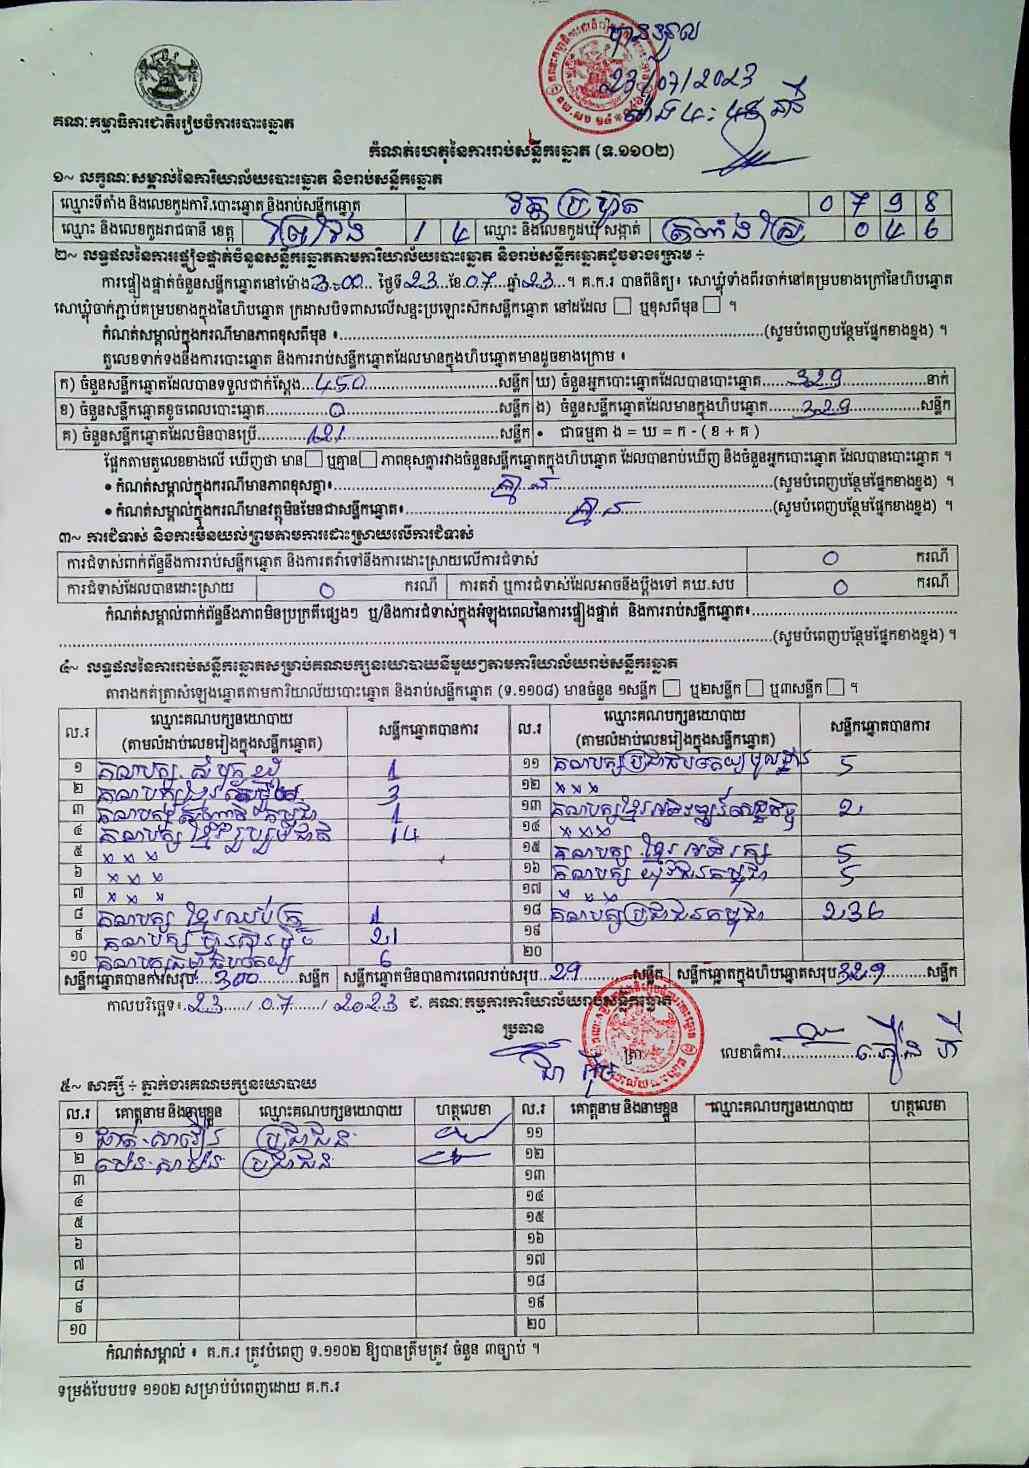 បានទទួល
23/07/2023
គណៈកម្មាធិការជាតិរៀបចំការបោះឆ្នោត
កំណត់ហេតុនៃការរាប់សន្លឹកឆ្នោត (ទ.១១០២)
១~ លក្ខណៈសម្គាល់នៃការិយាល័យបោះឆ្នោត និងរាប់សន្លឹកឆ្នោត
ឈ្មោះទីតាំង និងលេខកូដការិ.បោះឆ្នោត និងរាប់សន្លឹកឆ្នោត 0 7 9 8
ឈ្មោះ និងលេខកូដរាជធានី ខេត្ត ព្រៃវែង 1 4 ឈ្មោះ និងលេខកូដឃុំ សង្កាត់ 0 4 6
២~ លទ្ធផលនៃការផ្ទៀងផ្ទាត់ចំនួនសន្លឹកឆ្នោតតាមការិយាល័យបោះឆ្នោត និងរាប់សន្លឹកឆ្នោតដូចខាងក្រោម ÷
ការផ្ទៀងផ្ទាត់ចំនួនសន្លឹកឆ្នោតនៅម៉ោង 3:00 ថ្ងៃទី 23 ខែ 07 ឆ្នាំ 23 ។ គ.ក.រ បានពិនិត្យ៖ សោឃ្លុំទាំងពីរចាក់នៅគម្របខាងក្រៅនៃហិបឆ្នោត
សោឃ្លុំចាក់ភ្ជាប់គម្របខាងក្នុងនៃហិបឆ្នោត ក្រដាសបិទពាសលើសន្ទះប្រឡោះស៊កសន្លឹកឆ្នោត នៅដដែល □ ឬខុសពីមុន □ ។
កំណត់សម្គាល់ក្នុងករណីមានភាពខុសពីមុន ៖ (សូមបំពេញបន្ថែមផ្នែកខាងខ្នង) ។
តួលេខទាក់ទងនឹងការបោះឆ្នោត និងការរាប់សន្លឹកឆ្នោតដែលមានក្នុងហិបឆ្នោតមានដូចខាងក្រោម ៖
ក) ចំនួនសន្លឹកឆ្នោតដែលបានទទួលជាក់ស្តែង 450 សន្លឹក ឃ) ចំនួនអ្នកបោះឆ្នោតដែលបានបោះឆ្នោត 329 នាក់
ខ) ចំនួនសន្លឹកឆ្នោតខូចពេលបោះឆ្នោត 0 សន្លឹក ង) ចំនួនសន្លឹកឆ្នោតដែលមានក្នុងហិបឆ្នោត 329 សន្លឹក
គ) ចំនួនសន្លឹកឆ្នោតដែលមិនបានប្រើ 121 សន្លឹក • ជាធម្មតា ង = ឃ = ក - ( ខ + គ )
ផ្អែកតាមតួលេខខាងលើ ឃើញថា មាន □ ឬគ្មាន □ ភាពខុសគ្នារវាងចំនួនសន្លឹកឆ្នោតក្នុងហិបឆ្នោត ដែលបានរាប់ឃើញ និងចំនួនអ្នកបោះឆ្នោត ដែលបានបោះឆ្នោត ។
• កំណត់សម្គាល់ក្នុងករណីមានភាពខុសគ្នា៖ គ្មាន (សូមបំពេញបន្ថែមផ្នែកខាងខ្នង) ។
• កំណត់សម្គាល់ក្នុងករណីមានវត្ថុមិនមែនជាសន្លឹកឆ្នោត៖ គ្មាន (សូមបំពេញបន្ថែមផ្នែកខាងខ្នង) ។
៣~ ការជំទាស់ និងការមិនយល់ព្រមតាមការដោះស្រាយលើការជំទាស់
ការជំទាស់ពាក់ព័ន្ធនឹងការរាប់សន្លឹកឆ្នោត និងការតវ៉ាទៅនឹងការដោះស្រាយលើការជំទាស់ 0 ករណី
ការជំទាស់ដែលបានដោះស្រាយ 0 ករណី ការតវ៉ា ឬការជំទាស់ដែលអាចនឹងប្តឹងទៅ គឃ.សប 0 ករណី
កំណត់សម្គាល់ពាក់ព័ន្ធនឹងភាពមិនប្រក្រតីផ្សេងៗ ឬ/និងការជំទាស់ក្នុងអំឡុងពេលនៃការផ្ទៀងផ្ទាត់ និងការរាប់សន្លឹកឆ្នោត៖
(សូមបំពេញបន្ថែមផ្នែកខាងខ្នង) ។
៤~ លទ្ធផលនៃការរាប់សន្លឹកឆ្នោតសម្រាប់គណបក្សនយោបាយនីមួយៗតាមការិយាល័យរាប់សន្លឹកឆ្នោត
តារាងកត់ត្រាសំឡេងឆ្នោតតាមការិយាល័យបោះឆ្នោត និងរាប់សន្លឹកឆ្នោត (ទ.១១០៨) មានចំនួន ១សន្លឹក □ ឬ២សន្លឹក □ ឬ៣សន្លឹក □ ។
ល.រ ឈ្មោះគណបក្សនយោបាយ (តាមលំដាប់លេខរៀងក្នុងសន្លឹកឆ្នោត) សន្លឹកឆ្នោតបានការ ល.រ ឈ្មោះគណបក្សនយោបាយ (តាមលំដាប់លេខរៀងក្នុងសន្លឹកឆ្នោត) សន្លឹកឆ្នោតបានការ
១ គណបក្ស 1 ១១ គណបក្សប្រជាធិបតេយ្យមូលដ្ឋាន 5
២ គណបក្ស 3 ១២ x x x
៣ គណបក្ស 1 ១៣ គណបក្សខ្មែរ 2
៤ គណបក្ស ខ្មែររួបរួមជាតិ 14 ១៤ x x x
៥ x x x ១៥ គណបក្ស ខ្មែរ 5
៦ x x x ១៦ គណបក្ស យុវជនកម្ពុជា 5
៧ x x x ១៧ x x x
៨ គណបក្ស ខ្មែរឈប់ក្រ 1 ១៨ គណបក្សប្រជាជនកម្ពុជា 236
៩ គណបក្ស ហ៊្វុនស៊ិនប៉ិច 21 ១៩
១០ គណបក្ស 6 ២០
សន្លឹកឆ្នោតបានការសរុប 300 សន្លឹក សន្លឹកឆ្នោតមិនបានការពេលរាប់សរុប 29 សន្លឹក សន្លឹកឆ្នោតក្នុងហិបឆ្នោតសរុប 329 សន្លឹក
កាលបរិច្ឆេទ៖ 23 / 07 / 2023 ជ. គណៈកម្មការការិយាល័យរាប់សន្លឹកឆ្នោត
ប្រធាន
ត្រា លេខាធិការ
៥~ សាក្សី ÷ ភ្នាក់ងារគណបក្សនយោបាយ
ល.រ គោត្តនាម និងនាមខ្លួន ឈ្មោះគណបក្សនយោបាយ ហត្ថលេខា ល.រ គោត្តនាម និងនាមខ្លួន ឈ្មោះគណបក្សនយោបាយ ហត្ថលេខា
១ ប្រជាជន ១១
២ ប្រជាជន ១២
៣ ១៣
៤ ១៤
៥ ១៥
៦ ១៦
៧ ១៧
៨ ១៨
៩ ១៩
១០ ២០
កំណត់សម្គាល់ ៖ គ.ក.រ ត្រូវបំពេញ ទ.១១០២ ឱ្យបានត្រឹមត្រូវ ចំនួន ៣ច្បាប់ ។
ទម្រង់បែបបទ ១១០២ សម្រាប់បំពេញដោយ គ.ក.រ